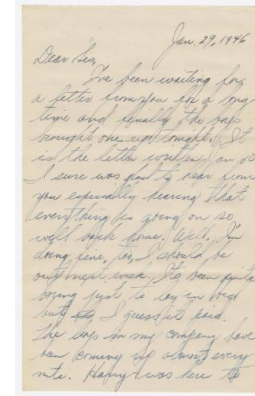 Jan. 29, 1946
Dear Sis,
I've been waiting for
a letter from you for a long
time and finally the boys
brought one up tonight. It
is the letter written on
I sure was glad to hear from
you especially hearing that
everything is going on so
well back home. Well, I'm
doing fine, too, I should be
out next week. It's been quite
boring just to lay in bed
but I guess it's
The boys in my company have
been coming up almost every
nite. Harry was here to